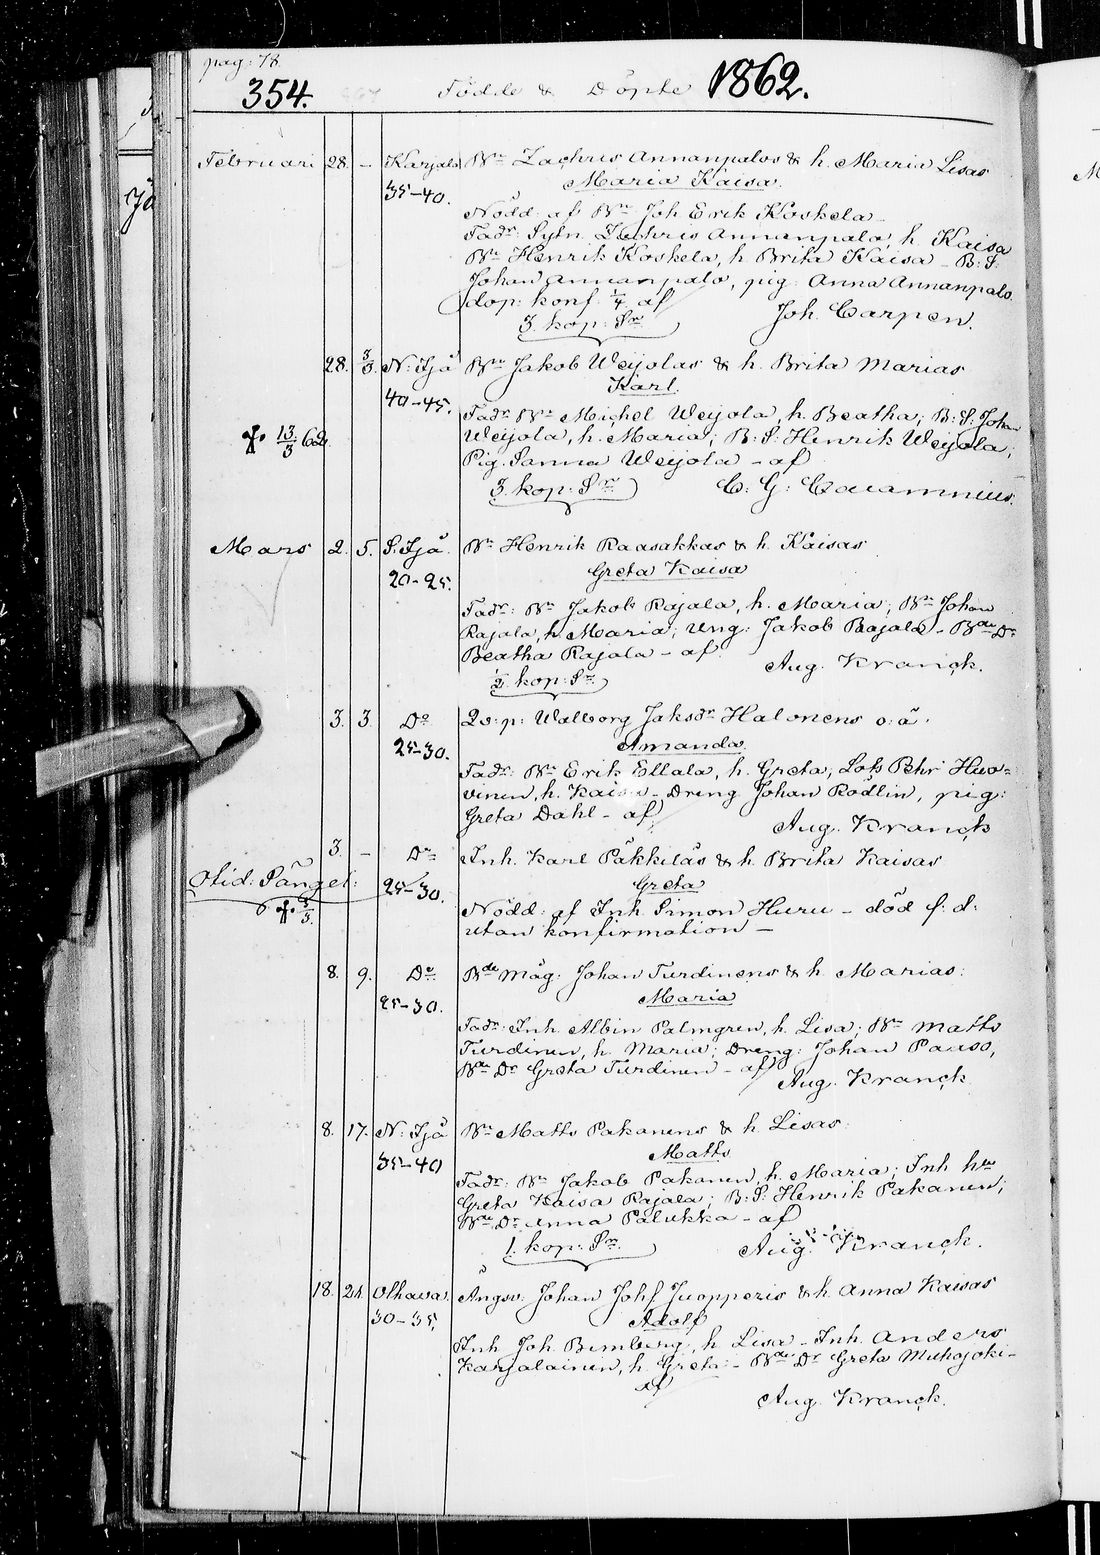 pag: 78
354.
Födde & Döpte 1862.
Februari 28. – Karjala Bn Zachris Annanpalos & h. Maria Lisas
35–40. Maria Kaisa.
Nödd: af Bn Joh Erik Koskela –
Fadr: Sytn. Zachris Annanpala, h. Kaisa
Bn Henrik Koskela, h. Brita Kaisa – B: S:
Johan Annanpalo, pig: Anna Annanpalo.
dop: konf: 1/4 af Joh. Carpen.
3. kop: Sr
28. 3/3 N: Ijå Bn Jakob Weijolas & h. Brita Marias
40–45. Karl.
Fadr Bn Michel Weijola, h. Beatha; B: S. Johan
✝. 13/3 62. Weijola, h. Maria; B: S: Henrik Weijola;
Pig. Sanna Weijola – af
3. kop: Sr C: G: Calamnius.
Mars 2. 5. S: Ijå. Bn Henrik Raasakkas & h. Kaisas
20–25. Greta Kaisa
Fadr: Bn Jakob Rajala, h. Maria; Bn Johan
Rajala, h. Maria; Ung: Jakob Rajala – Bde Dr
Beatha Rajala – af Aug. Kranck.
2. kop: Sr
3. 3. Do Qv: p: Walborg Jaksdr Halonens o: ä.
25–30. Amanda.
Fadr: Bn Erik Ellala, h. Greta; Lots Pehr Huo=
vinen, h. Kaisa – Dreng Johan Rödlin, pig:
Greta Dahl – af, Aug. Kranck
3. – Do Inh. Karl Päkkiläs & h. Brita Kaisas
Otid: Sängel: 25–30. Greta
✝. 3/3. Nödd: af Inh. Simon Huru – död f: d:
utan konfirmation –
8. 9. Do Bde Måg: Johan Turdinens & h. Marias:
25–30. Maria
Fadr: Inh Albin Palmgren, h. Lisa; Bn Matts
Turdinen, h. Maria; Dreng: Johan Paaso,
Bde Dr Greta Turdinen – af Aug. Kranck
8. 17. N: Ijå Bn Matts Pakanens & h. Lisas:
35–40 Matts
Fadr: Bn Jakob Pakanen, h. Maria; Inh
Greta Kaisa Rajala; B: S: Henrik Pakanen;
Bde Dr Anna Palukka – af
1. kop: Sr. Aug. Kranck.
18. 24. Olhava. Ångsv: Johan Johf Juopperis & h. Anna Kaisas
30–35, Adolf
Inh Joh. Bimberg, h Lisa – Inh. Anders
Karjalainen, h. Greta – Bde Dr Greta Muhojoki –
af
Aug. Kranck.